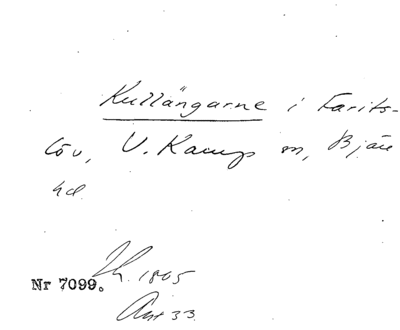 Kullängarne i Farits-
löv, V. Karup sn, Bjäre
hd
Nr 7099. Th. 1805
Akt 33